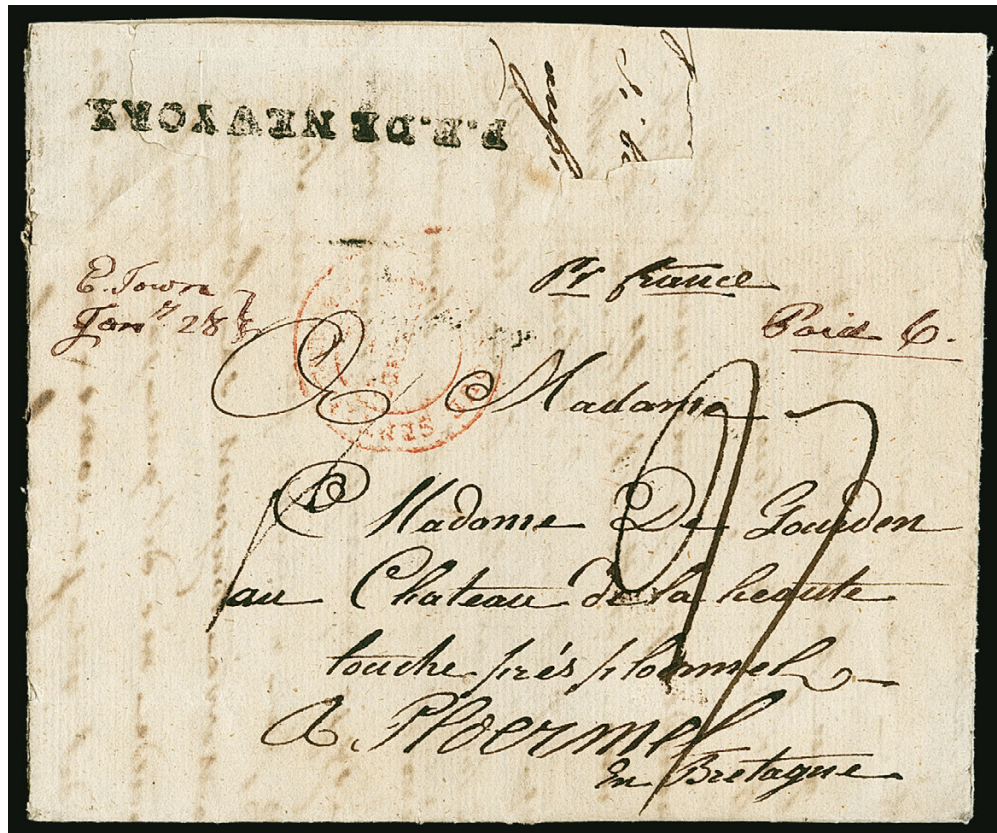 P.E.DE NEW YORK
E. Town
Jany 28
Pr france
Paid 6.
Madame
Madame De Gourden
au Chateau de la heaute
touche près plommel
A Ploermel
En Bretagne